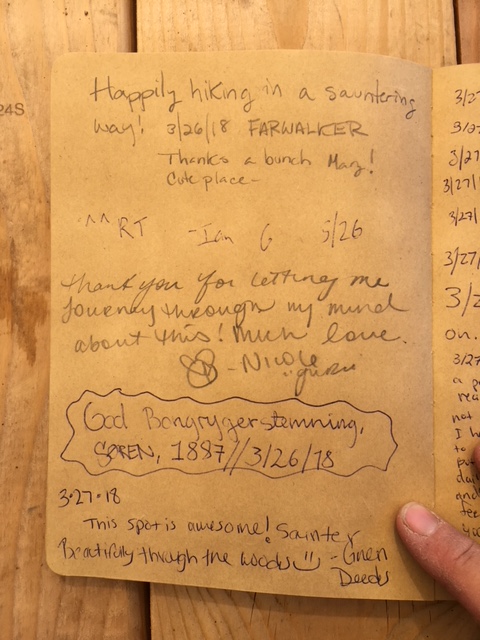 24S
Happily hiking in a sauntering
way! 3/26/18 FARWALKER
Thanks a bunch Mary!
Cute place-
^^ RT -Ian G 3/26
thank you for letting me
Journey through my mind
about this! Much love.
- Nicole
"guru"
God Bongrygerstemning,
SØREN, 1887//3/26/18
3·27·18
This spot is awesome! Sainter
Beautifully through the woods - Gnen
Deeds
3/27
3/27
3/27
3/27/1
3/27/
3/27/
3/2
on.
3/27
a p
rea
not
I h
to
pu
da
and
fee